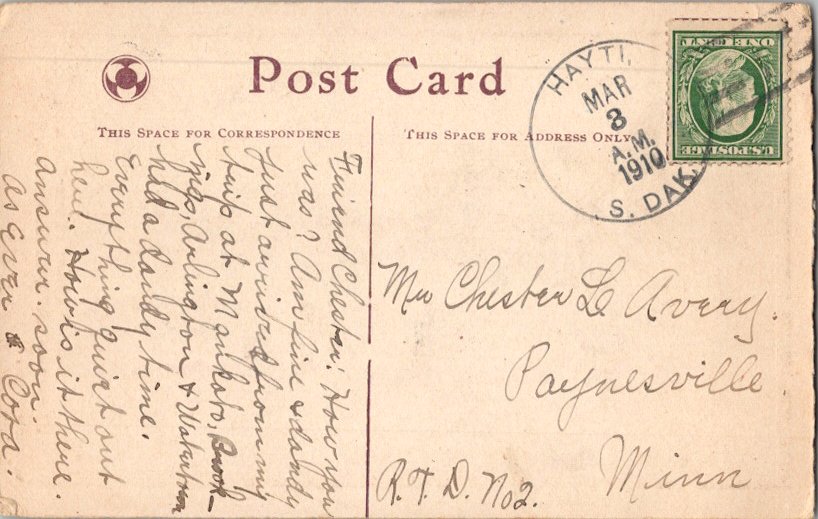 Post Card
THIS SPACE FOR CORRESPONDENCE
THIS SPACE FOR ADDRESS ONLY
HAYTI,
MAR
3
A.M.
1910
S. DAK.
U.S. POSTAGE
ONE CENT
Friend Chester: How you
was? Am fine & dandy
just arrived from my
trip at Mankato, Brook-
ings, Arlington & Watertown
had a dandy time.
Everything quiet out
here. How is it there.
Answer soon.
As ever Cora.
Mr Chester L Avery.
Paynesville
Minn
R.F.D. No 2.